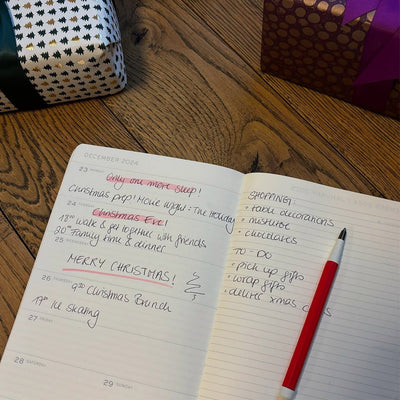 DECEMBER 2024
23 MONDAY
Only one more sleep!
Christmas prep! Movie night: The Holiday
24 TUESDAY
Christmas Eve!
18³⁰ Walk & get together with friends
20³⁰ Family time & dinner
25 WEDNESDAY
MERRY CHRISTMAS!
26 THURSDAY
9³⁰ Christmas Brunch
17³⁰ Ice skating
27 FRIDAY
28 SATURDAY
29 SUNDAY
SHOPPING:
• table decorations
• mistletoe
• chocolates
TO-DO
• pick up gifts
• wrap gifts
• deliver xmas